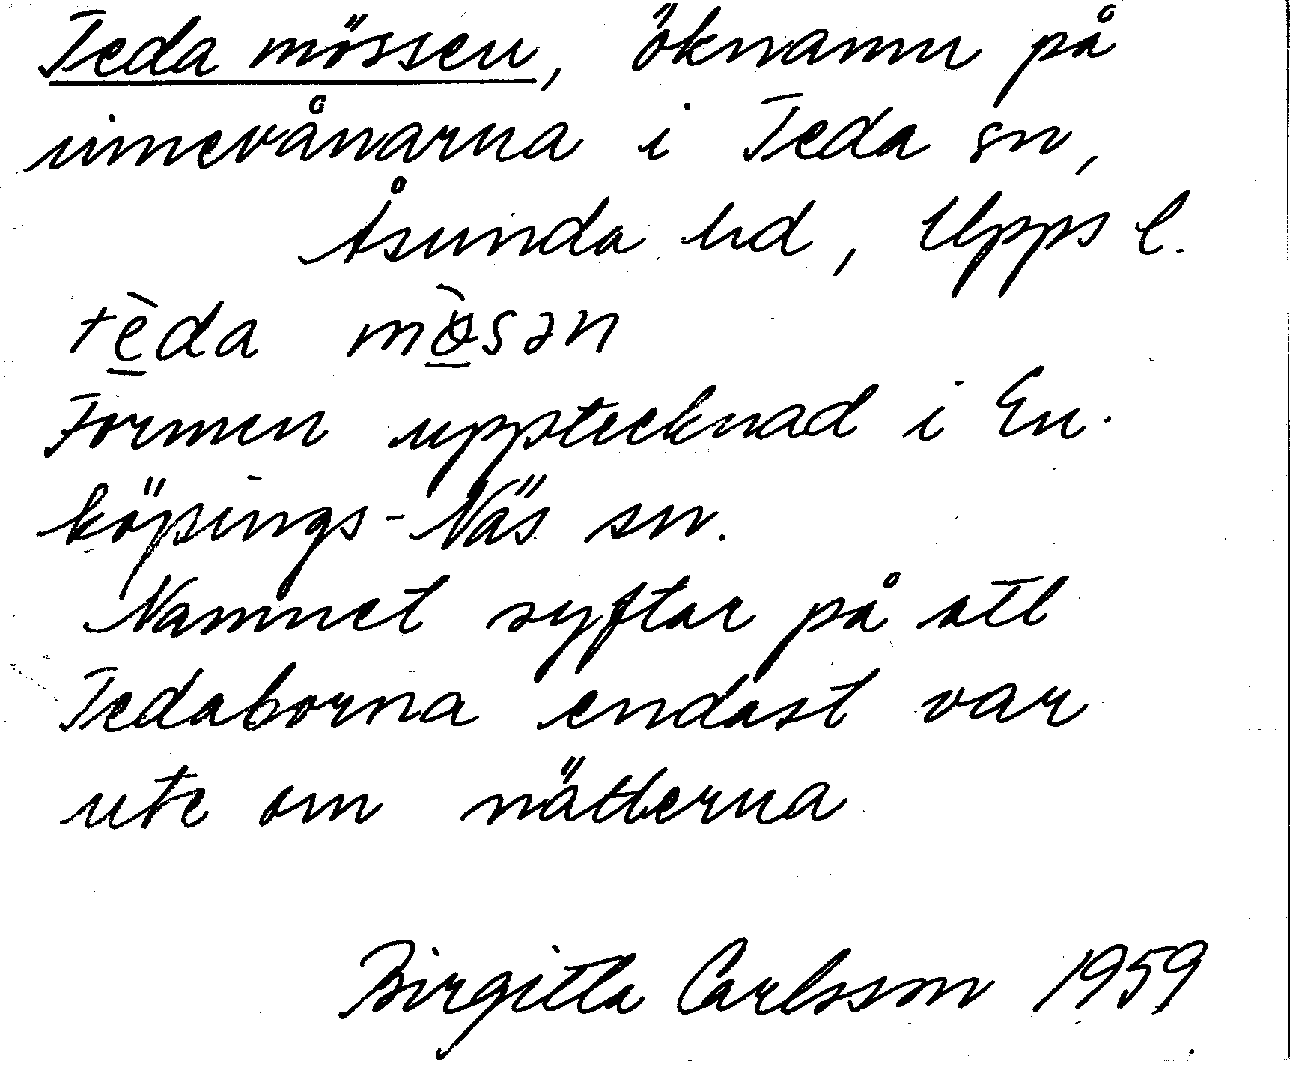 Teda mössen, öknamn på
innevånarna i Teda sn,
Åsunda hd, Uppsl.
tèda mø̀sən
Formen upptecknad i En-
köpings-Näs sn.
Namnet syftar på att
Tedaborna endast var
ute om nätterna
Birgitta Carlsson 1959